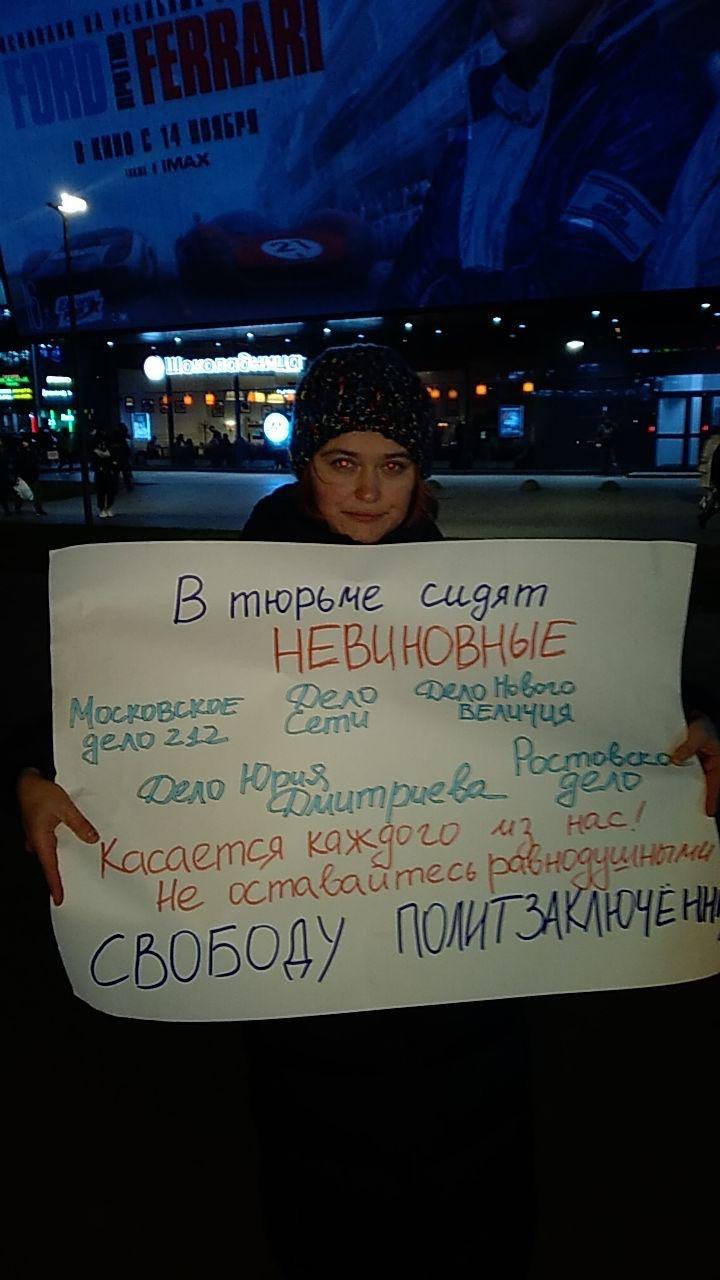 FORD
ПРОТИВ
FERRARI
В КИНО С 14 НОЯБРЯ
IMAX
21
Шоколадница
В тюрьме сидят
НЕВИНОВНЫЕ
Московское
дело 212
Дело
Сети
Дело Нового
ВЕЛИЧИЯ
Дело Юрия
Дмитриева
Ростовско
дело
Касается каждого из нас!
Не оставайтесь равнодушными
СВОБОДУ ПОЛИТЗАКЛЮЧЁНН